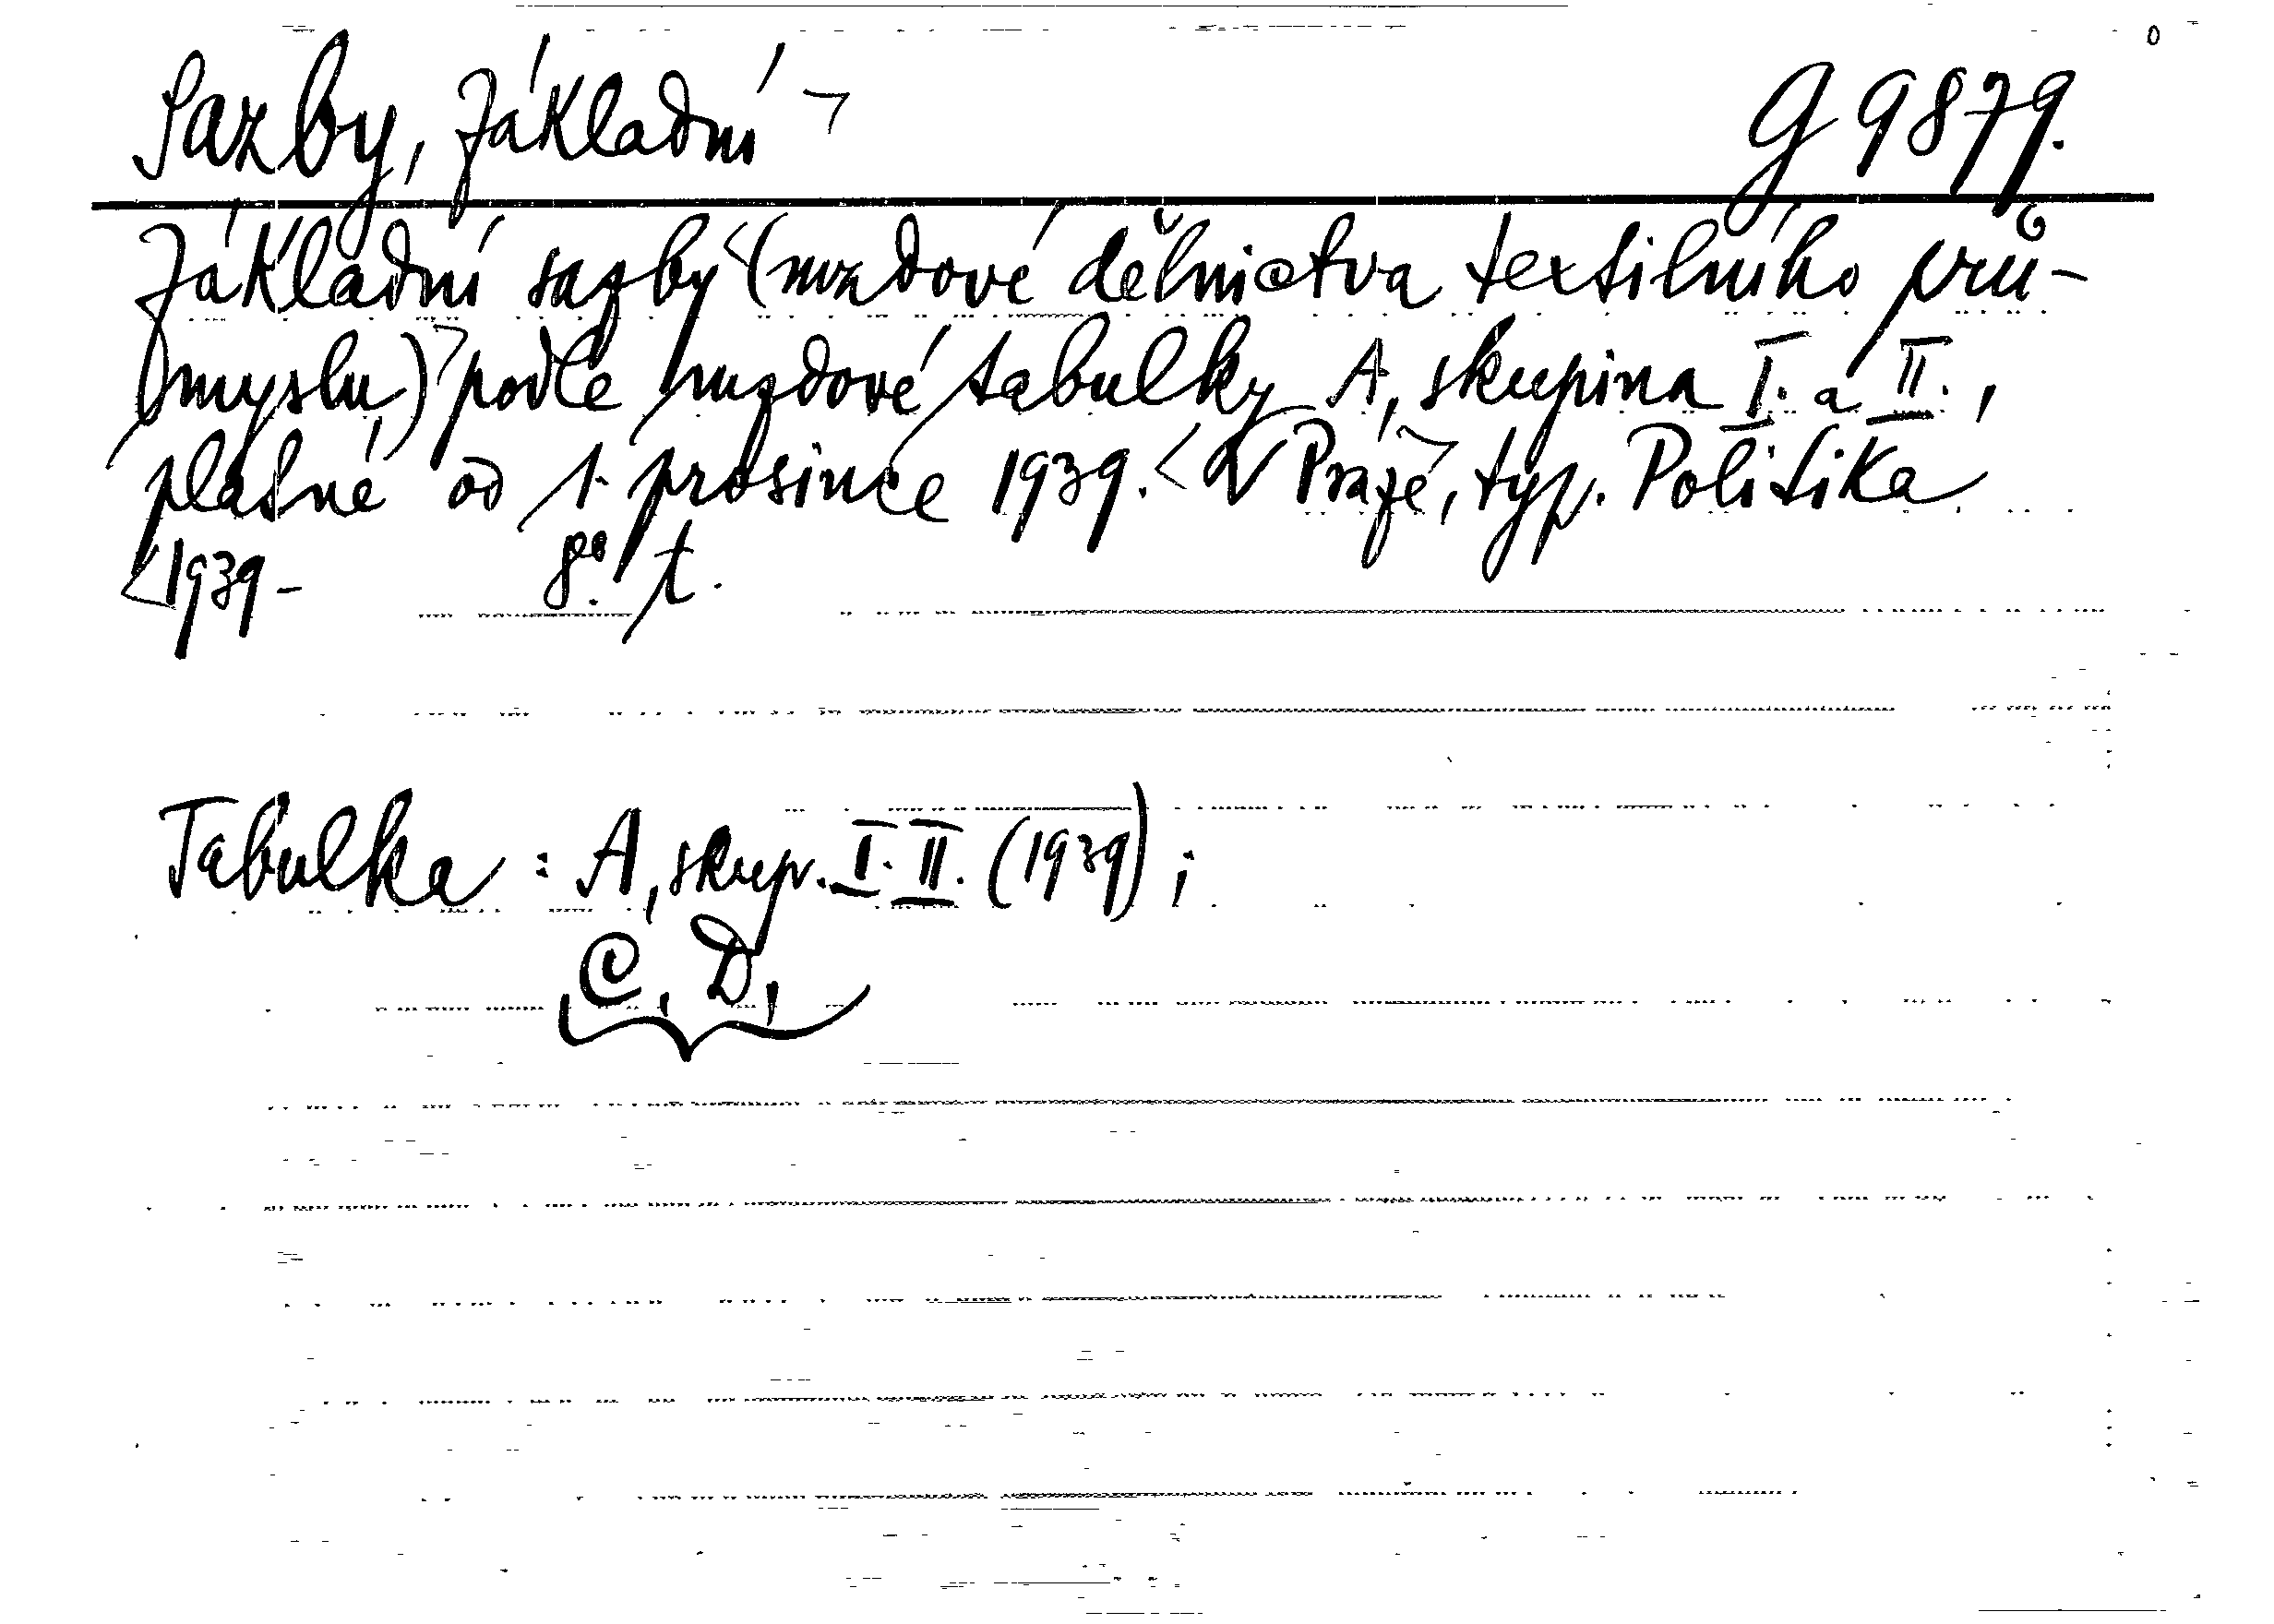 Sazby, základní ¬ G 9879.
Základní sazby <(mzdové dělnictva textilního prů-
myslu)¬ podle mzdové tabulky A, skupina I. a II.,
platné od 1. prosince 1939. < V Praze¬, typ. Politika
<1939- 8° t.
Tabulka : A, skup. I. II. (1939) ;
C, D,